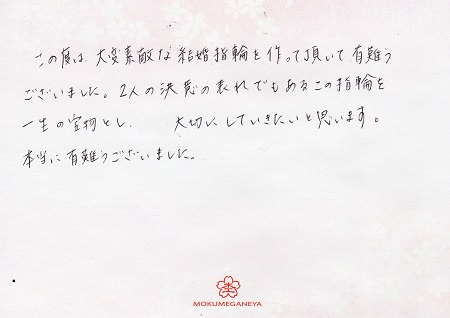 この度は、大変素敵な結婚指輪を作って頂いて有難う
ございました。2人の決意の表れでもあるこの指輪を
一生の宝物とし、 大切にしていきたいと思います。
本当に有難うございました。
MOKUMEGANEYA